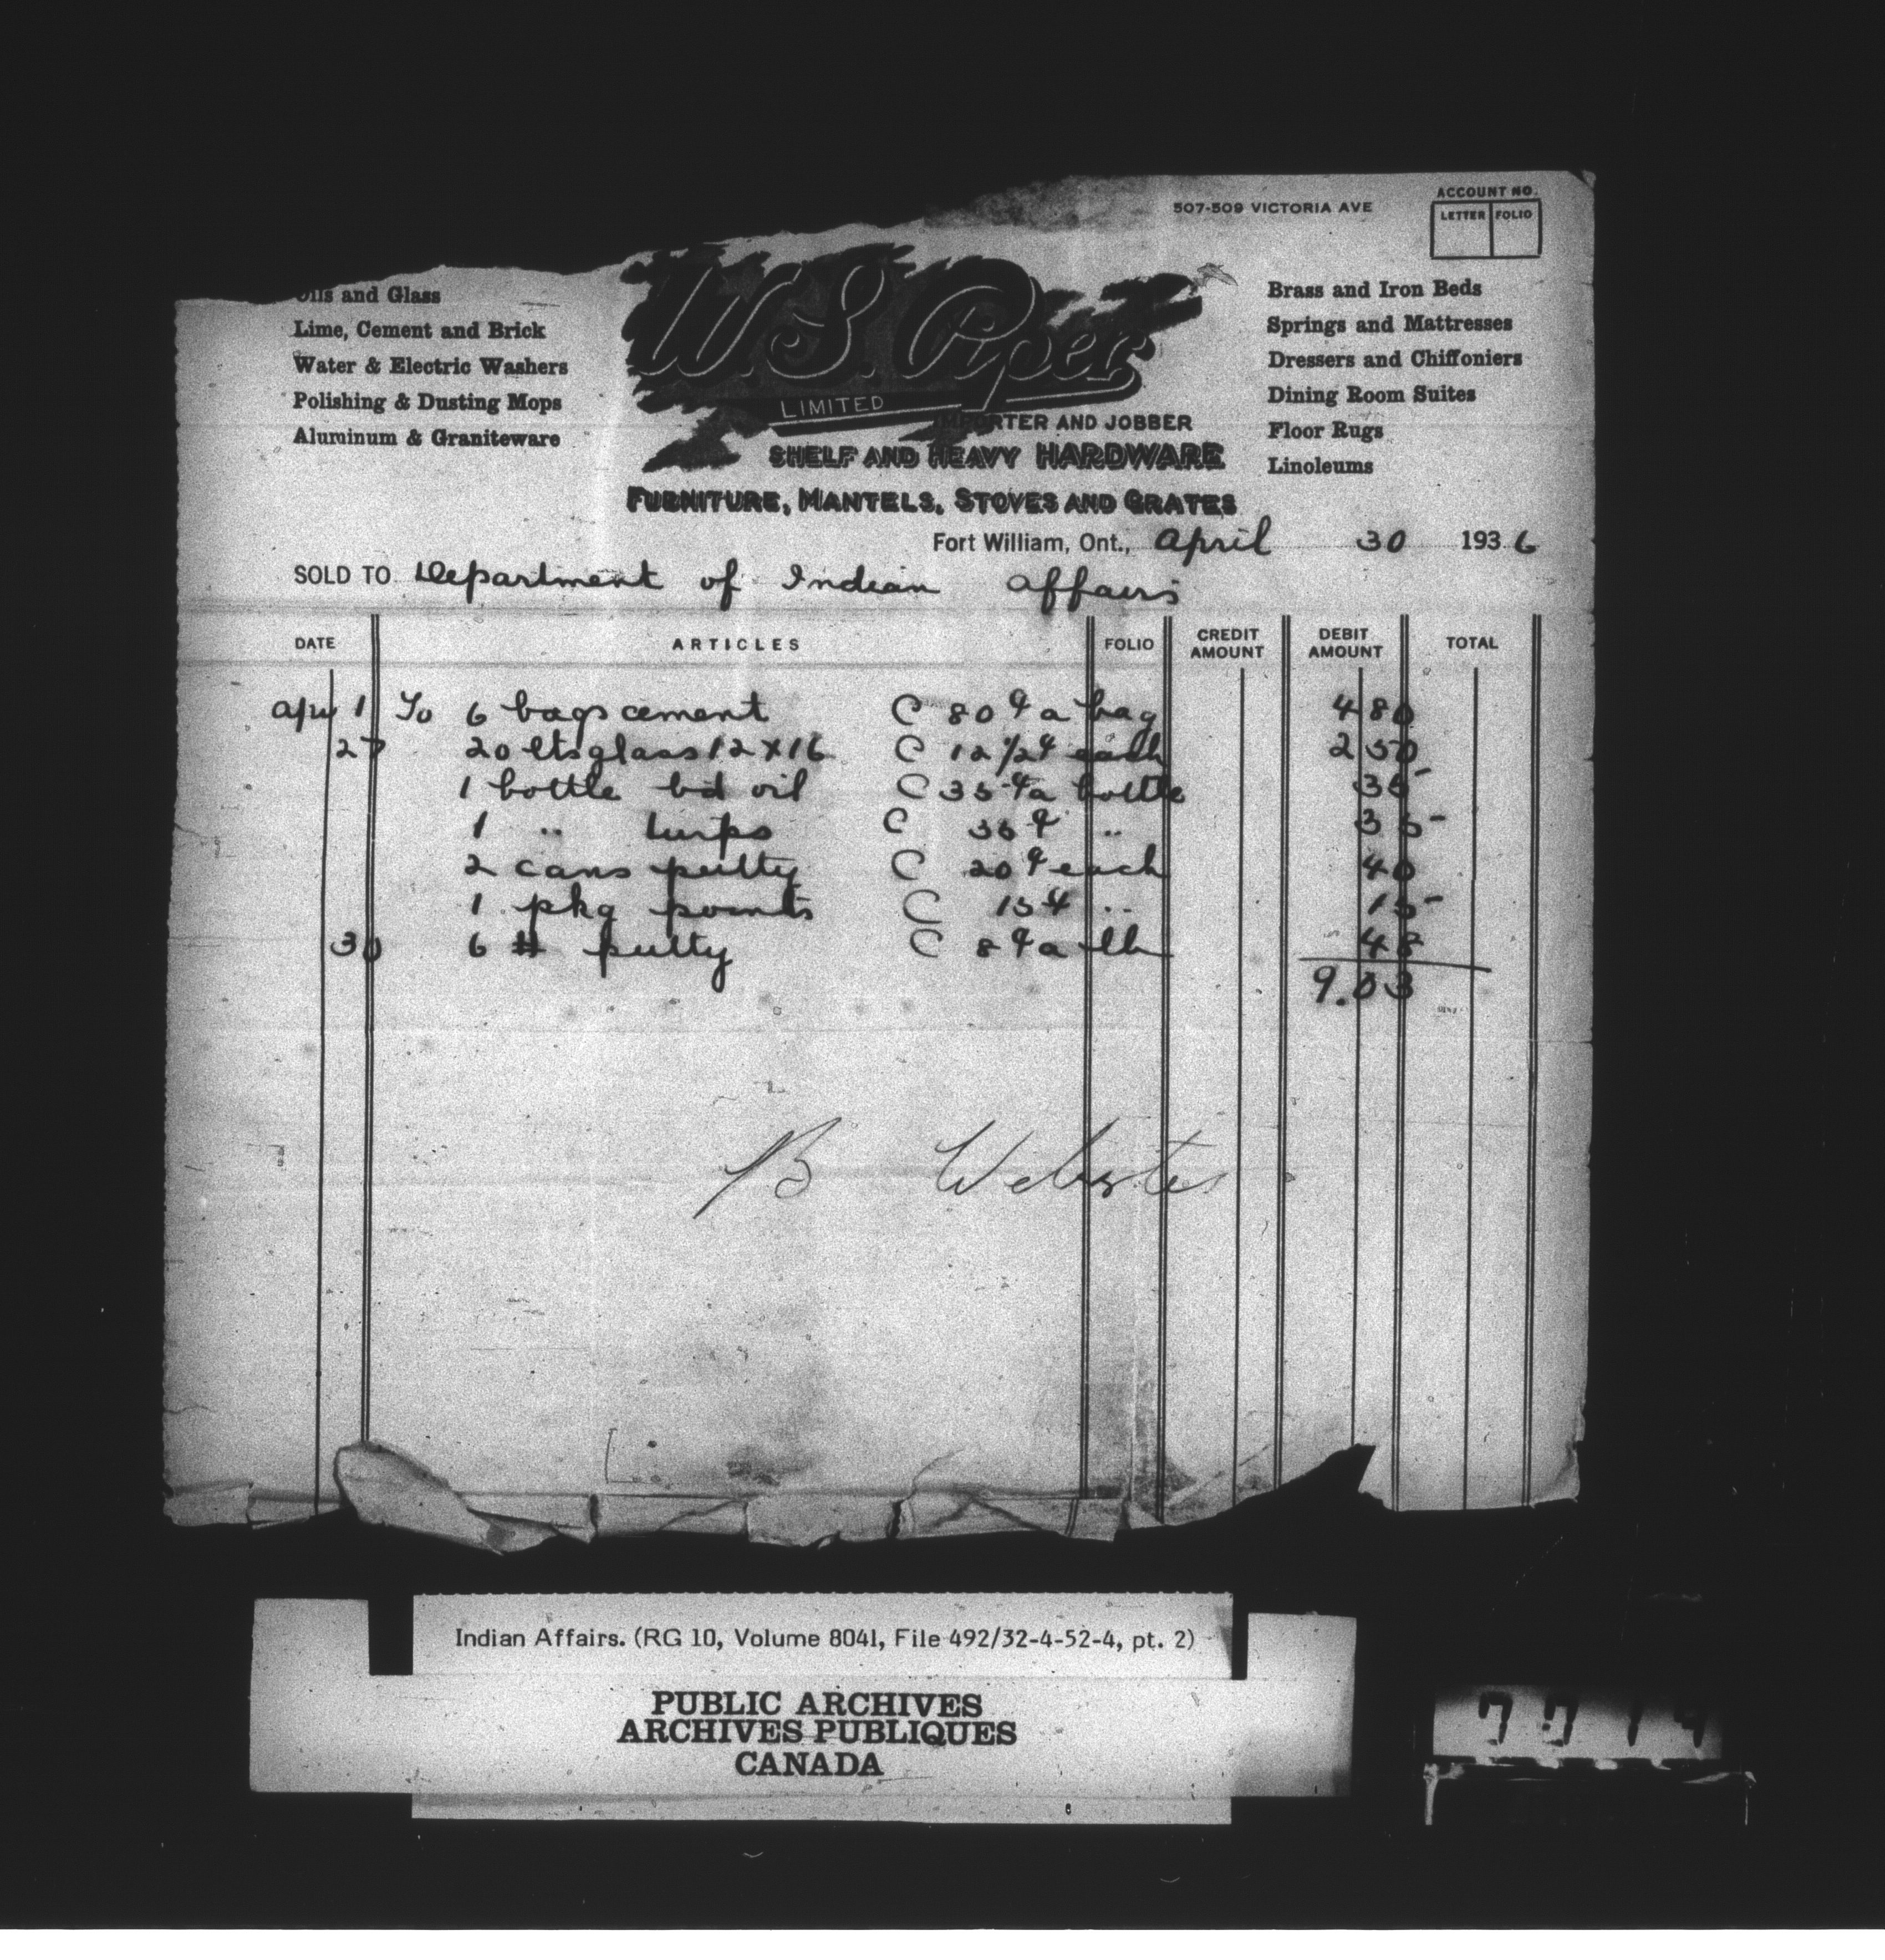 507-509 VICTORIA AVE
ACCOUNT NO.
LETTER FOLIO
Oils and Glass
Lime, Cement and Brick
Water & Electric Washers
Polishing & Dusting Mops
Aluminum & Graniteware
W.S. Piper
LIMITED
IMPORTER AND JOBBER
SHELF AND HEAVY HARDWARE
FURNITURE, MANTELS, STOVES AND GRATES
Brass and Iron Beds
Springs and Mattresses
Dressers and Chiffoniers
Dining Room Suites
Floor Rugs
Linoleums
Fort William, Ont., April 30 1936
SOLD TO Department of Indian Affairs
DATE ARTICLES FOLIO CREDIT AMOUNT DEBIT AMOUNT TOTAL
Apr 1 To 6 bags cement @ 80¢ a bag 4 80
27 20 lts glass 12 x 16 @ 12 1/2¢ each 2 50
1 bottle bd oil @ 35¢ a bottle 35
1 " turps @ 35¢ " 35
2 cans putty @ 20¢ each 40
1 pkg points @ 15¢ " 15
30 6 # putty @ 8¢ a lb 48
9.03
B Webster
Indian Affairs. (RG 10, Volume 8041, File 492/32-4-52-4, pt. 2)
PUBLIC ARCHIVES
ARCHIVES PUBLIQUES
CANADA